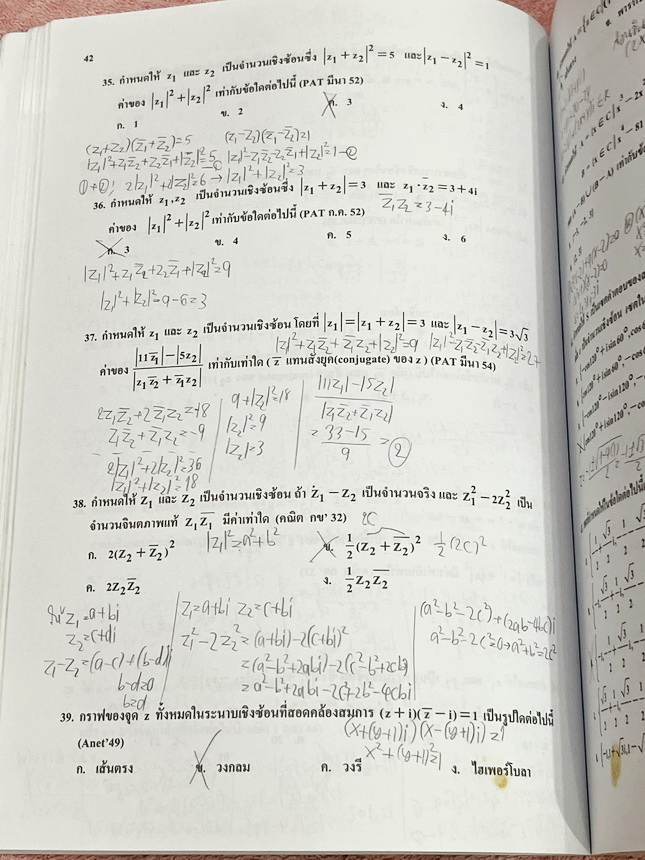 42
35. กำหนดให้ z₁ และ z₂ เป็นจำนวนเชิงซ้อนซึ่ง |z₁ + z₂|² = 5 และ |z₁ − z₂|² = 1
ค่าของ |z₁|² + |z₂|² เท่ากับข้อใดต่อไปนี้ (PAT มีนา 52)
ก. 1 ข. 2 ค. 3 ง. 4
(z₁+z₂)(z̄₁+z̄₂)=5 (z₁−z₂)(z̄₁−z̄₂)=1
|z₁|²+z₁z̄₂+z₂z̄₁+|z₂|²=5 |z₁|²−z₁z̄₂−z₂z̄₁+|z₂|²=1−②
①+②; 2|z₁|²+2|z₂|²=6 → |z₁|²+|z₂|²=3
36. กำหนดให้ z₁,z₂ เป็นจำนวนเชิงซ้อนซึ่ง |z₁ + z₂| = 3 และ z₁ · z̄₂ = 3 + 4i
z̄₁z₂ = 3−4i
ค่าของ |z₁|² + |z₂|² เท่ากับข้อใดต่อไปนี้ (PAT ก.ค. 52)
ก. 3 ข. 4 ค. 5 ง. 6
|z₁|²+z₁z̄₂+z₂z̄₁+|z₂|²=9
|z₁|²+|z₂|²=9−6=3
37. กำหนดให้ z₁ และ z₂ เป็นจำนวนเชิงซ้อน โดยที่ |z₁| = |z₁ + z₂| = 3 และ |z₁ − z₂| = 3√3
|z₁|²+z₁z̄₂+z̄₁z₂+|z₂|²=9 |z₁|²−z₁z̄₂−z̄₁z₂+|z₂|²=27
ค่าของ (|11z̄₁| − |5z₂|) / |z₁z̄₂ + z̄₁z₂| เท่ากับเท่าใด ( z̄ แทนสังยุค(conjugate) ของ z ) (PAT มีนา 54)
2z₁z̄₂+2z̄₁z₂=−18 9+|z₂|²=18 |11z₁|−|5z₂|
z₁z̄₂+z̄₁z₂=−9 |z₂|²=9 |z₁z̄₂+z̄₁z₂|
|z₂|=3 = (33−15)/9 = ②
2|z₁|²+2|z₂|²=36
|z₁|²+|z₂|²=18
38. กำหนดให้ Z₁ และ Z₂ เป็นจำนวนเชิงซ้อน ถ้า Z₁ − Z₂ เป็นจำนวนจริง และ Z₁² − 2Z₂² เป็น
จำนวนจินตภาพแท้ Z₁Z̄₁ มีค่าเท่าใด (คณิต กข' 32) 2C
|z₁|²=a²+b²
ก. 2(Z₂ + Z̄₂)² ข. ½(Z₂ + Z̄₂)² ½(2C)²
ค. 2Z₂Z̄₂ ง. ½Z₂Z̄₂
z₁=a+bi
z₂=c+di
z₁−z₂=(a−c)+(b−d)i
b−d=0
b=d
z₁=a+bi z₂=c+bi
z₁²−2z₂²=(a+bi)−2(c+bi)²
=(a²−b²+2abi)−2(c²−b²+2cbi)
=a²−b²+2abi−2c²+2b²−4cbi
(a²−b²−2c²)+(2ab−4bc)i
a²−b²−2c²=0→a²+b²=2c²
39. กราฟของจุด z ทั้งหมดในระนาบเชิงซ้อนที่สอดคล้องสมการ (z + i)(z̄ − i) = 1 เป็นรูปใดต่อไปนี้
(Anet'49) (x+(y+1)i)(x−(y+1)i)=1
x²+(y+1)²=1
ก. เส้นตรง ข. วงกลม ค. วงรี ง. ไฮเพอร์โบลา